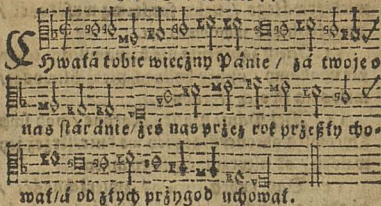 Chwałá tobie wiecżny Pánie / zá twoje o
nas stáránie / żeś nas przez rok przeszły cho-
wał / á od złych przygod uchował.